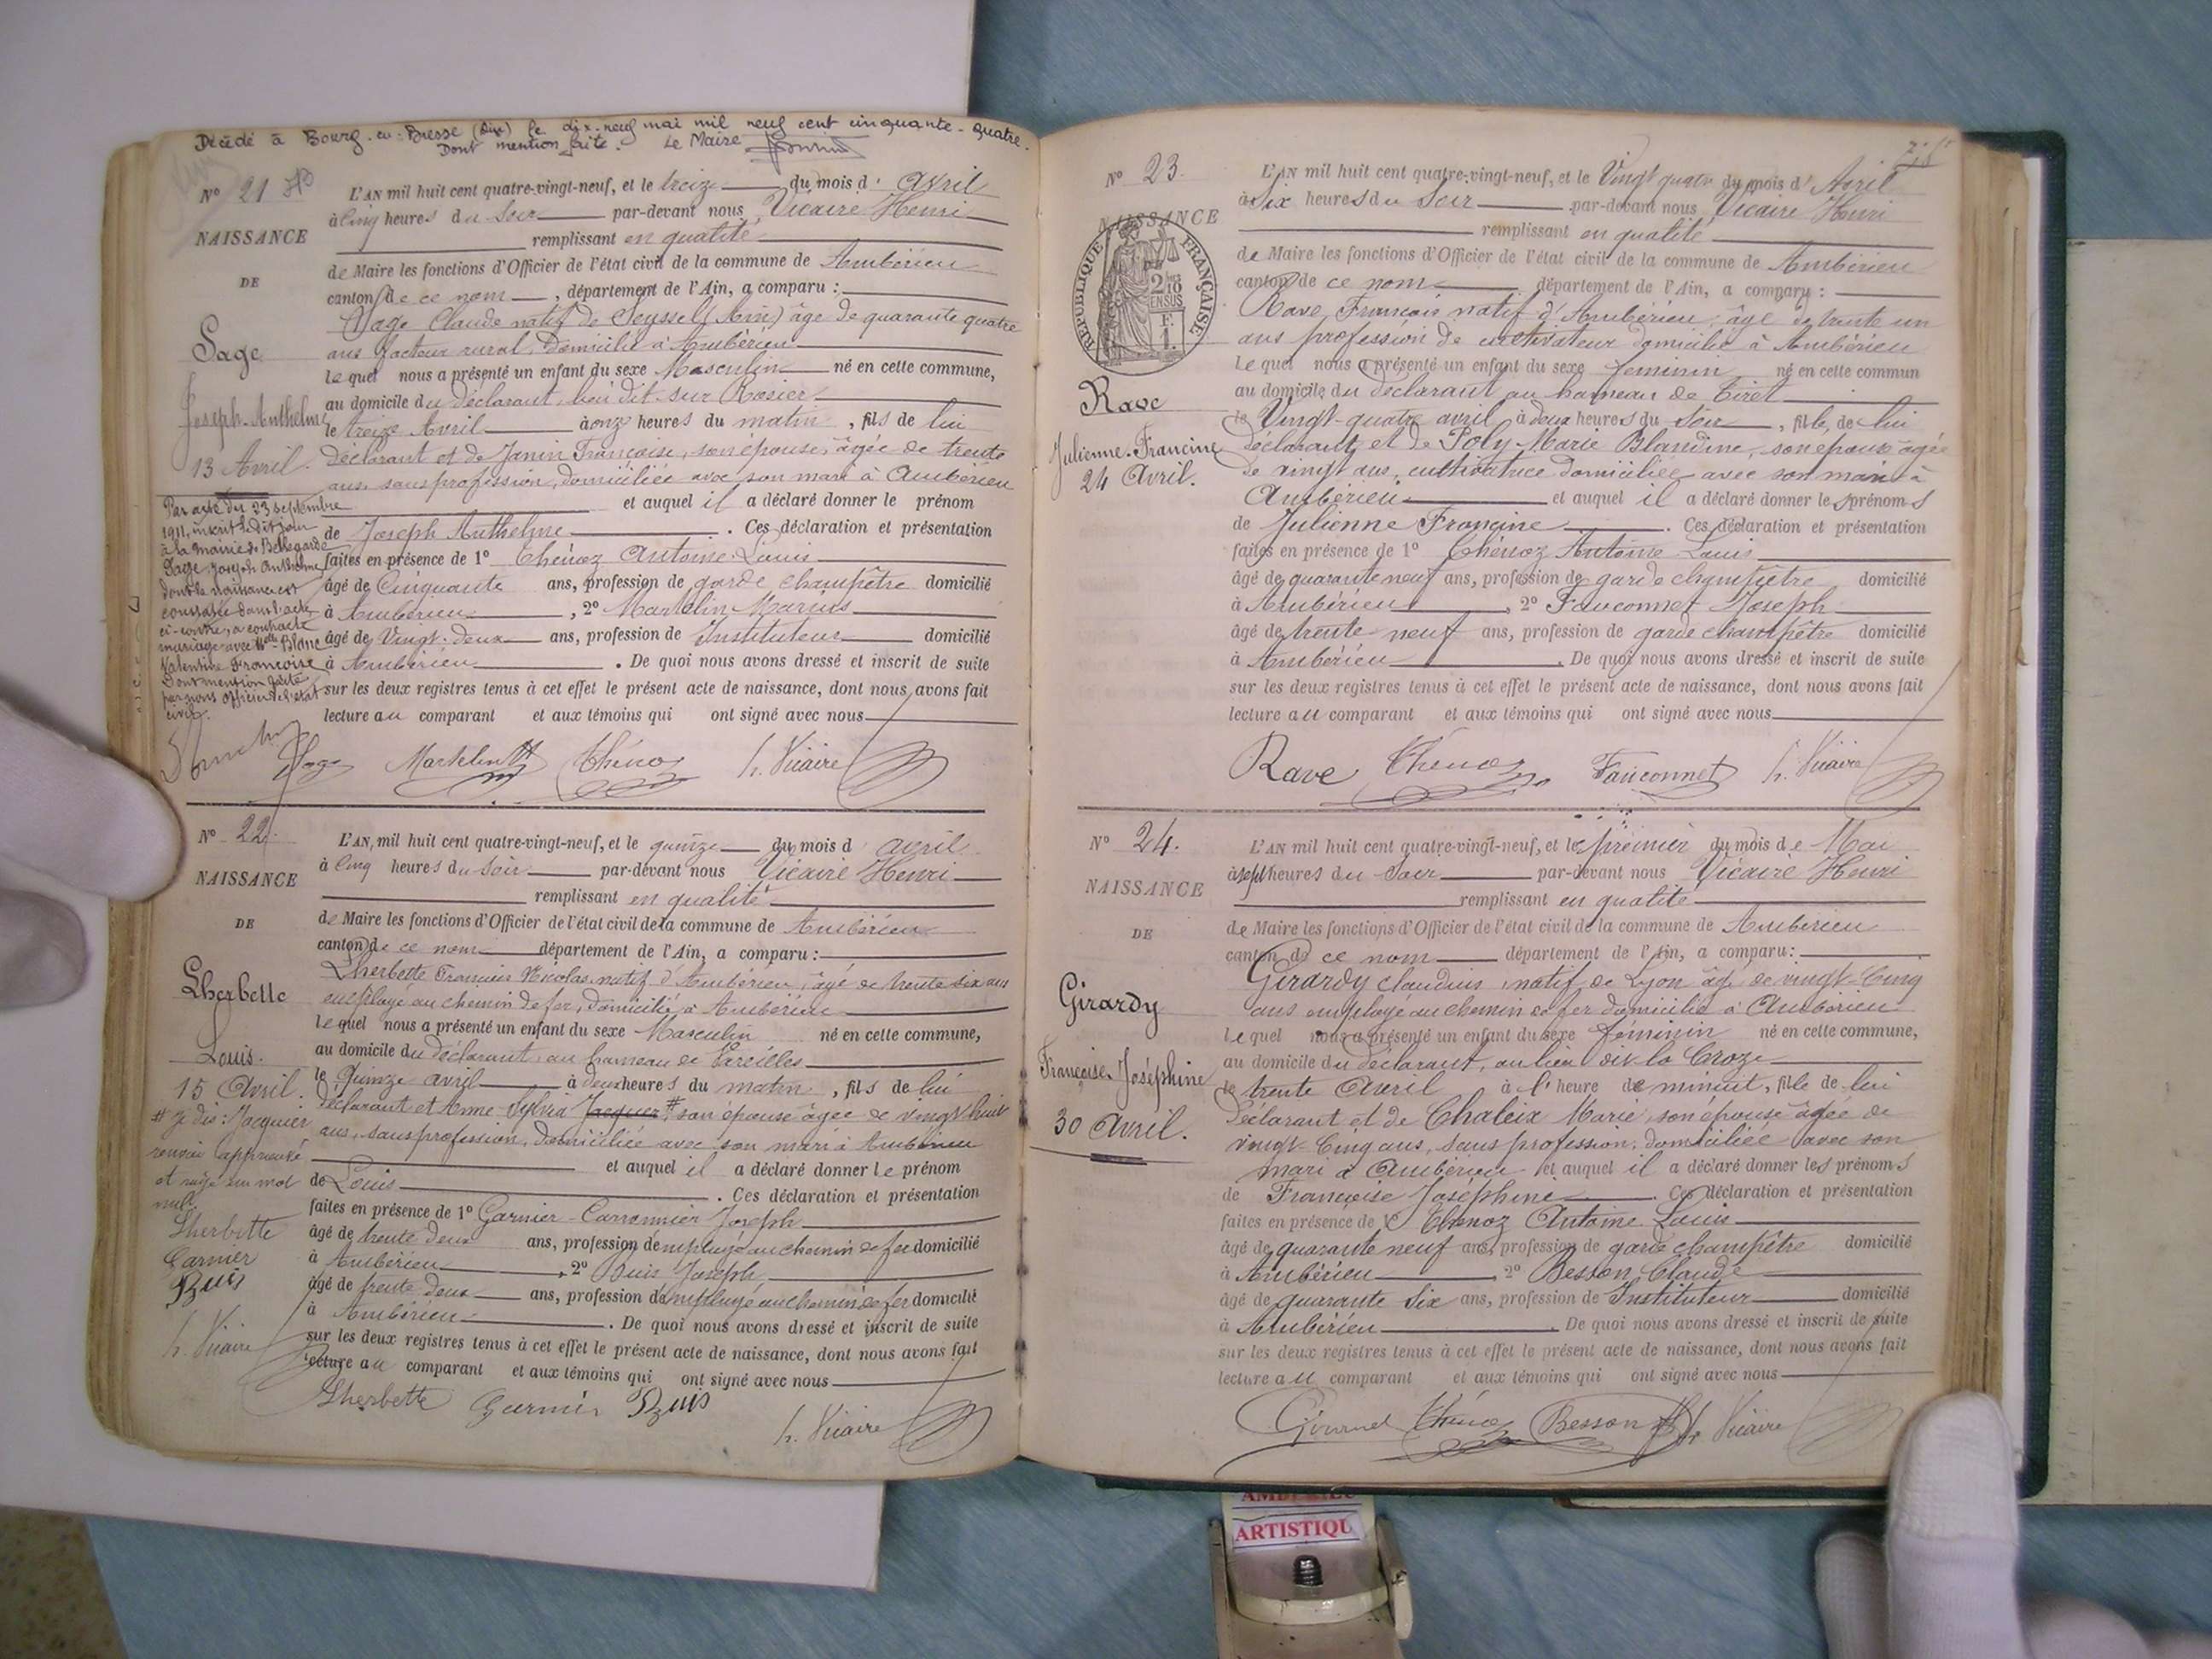 Décédé à Bourg-en-Bresse (Ain) le dix-neuf mai mil neuf cent cinquante-quatre.
Dont mention faite. Le Maire
N° 21
NAISSANCE
DE
Sage
Joseph-Anthelme
13 Avril.
Par acte du 23 septembre
1911, inscrit ledit jour
à la Mairie de Bellegarde
Sage Joseph Anthelme
dont la naissance est
constatée dans l'acte
ci-contre, a contracté
mariage avec Mlle Blanc
Valentine Françoise
Dont mention faite
par nous officier de l'état
civil.
L'AN mil huit cent quatre-vingt-neuf, et le treize du mois d' Avril
à cinq heures du Soir par-devant nous Vicaire Henri
remplissant en qualité
de Maire les fonctions d'Officier de l'état civil de la commune de Ambérieu
canton de ce nom, département de l'Ain, a comparu :
Sage Claude natif de Seyssel (Ain) âgé de quarante quatre
ans facteur rural, domicilié à Ambérieu
lequel nous a présenté un enfant du sexe Masculin né en cette commune,
au domicile du déclarant, lieu dit sur Rosier
le treize Avril à onze heures du matin, fils de lui
déclarant et de Janin Françoise, son épouse, âgée de trente
ans, sans profession, domiciliée avec son mari à Ambérieu
et auquel il a déclaré donner le prénom
de Joseph Anthelme. Ces déclaration et présentation
faites en présence de 1° Thénoz Antoine Louis
âgé de Cinquante ans, profession de garde champêtre domicilié
à Ambérieu, 2° Martelin Marius
âgé de Vingt-deux ans, profession de Instituteur domicilié
à Ambérieu. De quoi nous avons dressé et inscrit de suite
sur les deux registres tenus à cet effet le présent acte de naissance, dont nous avons fait
lecture au comparant et aux témoins qui ont signé avec nous
Sage Martelin M Thénoz h. Vicaire
N° 22.
NAISSANCE
DE
Lherbette
Louis.
15 Avril.
# Je dis : Jacquier
renvoi approuvé
et rayé un mot
nul.
Lherbette
Garnier
Buis
h. Vicaire
L'AN, mil huit cent quatre-vingt-neuf, et le quinze du mois d' avril
à cinq heures du Soir par-devant nous Vicaire Henri
remplissant en qualité
de Maire les fonctions d'Officier de l'état civil de la commune de Ambérieu
canton de ce nom département de l'Ain, a comparu :
Lherbette François Nicolas natif d'Ambérieu, âgé de trente six ans
employé au chemin de fer, domicilié à Ambérieu
lequel nous a présenté un enfant du sexe Masculin né en cette commune,
au domicile du déclarant, au hameau de Vareilles
le Quinze avril à deux heures du matin, fils de lui
déclarant et Anne Sylvia Jacquer # son épouse âgée de vingt huit
ans, sans profession, domiciliée avec son mari à Ambérieu
et auquel il a déclaré donner le prénom
de Louis. Ces déclaration et présentation
faites en présence de 1° Garnier-Carronnier Joseph
âgé de trente deux ans, profession d'employé au chemin de fer domicilié
à Ambérieu, 2° Buis Joseph
âgé de trente deux ans, profession d'employé au chemin de fer domicilié
à Ambérieu. De quoi nous avons dressé et inscrit de suite
sur les deux registres tenus à cet effet le présent acte de naissance, dont nous avons fait
lecture au comparant et aux témoins qui ont signé avec nous
Lherbette Garnier Buis h. Vicaire
N° 23.
NAISSANCE
RÉPUBLIQUE FRANÇAISE
2/10 EN SUS
F. 1.
Rave
Julienne-Francine
24 Avril.
L'AN mil huit cent quatre-vingt-neuf, et le Vingt quatre du mois d' Avril
à Six heures du Soir par-devant nous Vicaire Henri
remplissant en qualité
de Maire les fonctions d'Officier de l'état civil de la commune de Ambérieu
canton de ce nom département de l'Ain, a comparu :
Rave François natif d'Ambérieu, âgé de trente un
ans profession de cultivateur domicilié à Ambérieu
lequel nous a présenté un enfant du sexe féminin né en cette commun
au domicile du déclarant au hameau de Tiret
le Vingt-quatre avril à deux heures du Soir, fille, de lui
déclarant et de Poly Marie Blandine, son épouse âgée
de vingt ans, cultivatrice domiciliée avec son mari à
Ambérieu et auquel il a déclaré donner les prénoms
de Julienne Francine. Ces déclaration et présentation
faites en présence de 1° Thénoz Antoine Louis
âgé de quarante neuf ans, profession de garde champêtre domicilié
à Ambérieu, 2° Fauconnet Joseph
âgé de trente neuf ans, profession de garde champêtre domicilié
à Ambérieu. De quoi nous avons dressé et inscrit de suite
sur les deux registres tenus à cet effet le présent acte de naissance, dont nous avons fait
lecture au comparant et aux témoins qui ont signé avec nous
Rave Thénoz Fauconnet h. Vicaire
N° 24.
NAISSANCE
DE
Girardy
Françoise Joséphine
30 Avril.
L'AN mil huit cent quatre-vingt-neuf, et le premier du mois de Mai
à sept heures du Soir par-devant nous Vicaire Henri
remplissant en qualité
de Maire les fonctions d'Officier de l'état civil de la commune de Ambérieu
canton de ce nom département de l'Ain, a comparu :
Girardy Claudius natif de Lyon âgé de vingt-Cinq
ans employé au chemin de fer domicilié à Ambérieu
lequel nous a présenté un enfant du sexe féminin né en cette commune,
au domicile du déclarant, au lieu dit la Croze
le trente Avril à l'heure de minuit, fille de lui
déclarant et de Chaleix Marie, son épouse âgée de
vingt-Cinq ans, sans profession, domiciliée avec son
mari à Ambérieu et auquel il a déclaré donner les prénoms
de Françoise Joséphine. Ces déclaration et présentation
faites en présence de 1° Thénoz Antoine Louis
âgé de quarante neuf ans, profession de garde champêtre domicilié
à Ambérieu, 2° Besson Claude
âgé de quarante Six ans, profession de Instituteur domicilié
à Ambérieu. De quoi nous avons dressé et inscrit de suite
sur les deux registres tenus à cet effet le présent acte de naissance, dont nous avons fait
lecture au comparant et aux témoins qui ont signé avec nous
Thénoz Besson h. Vicaire
ARTISTIQU